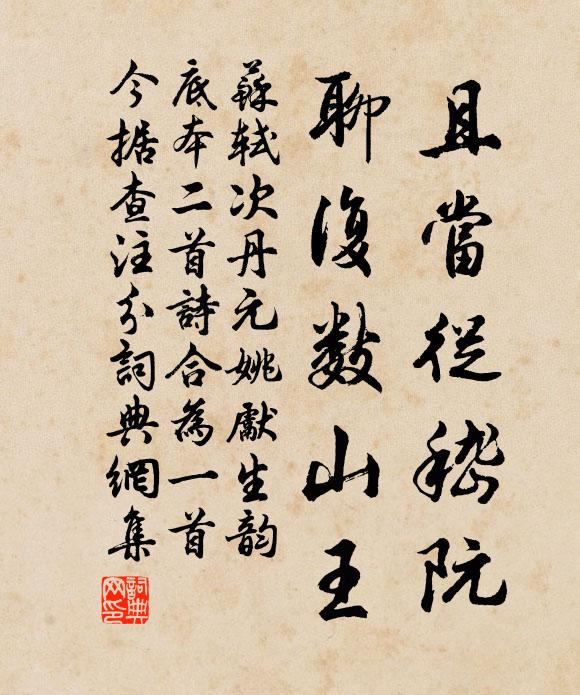 且當從嵇阮
聊復數山王
蘇軾次丹元姚獻生韵
底本二首詩合為一首
今据查注分詞典網集
詞典網印